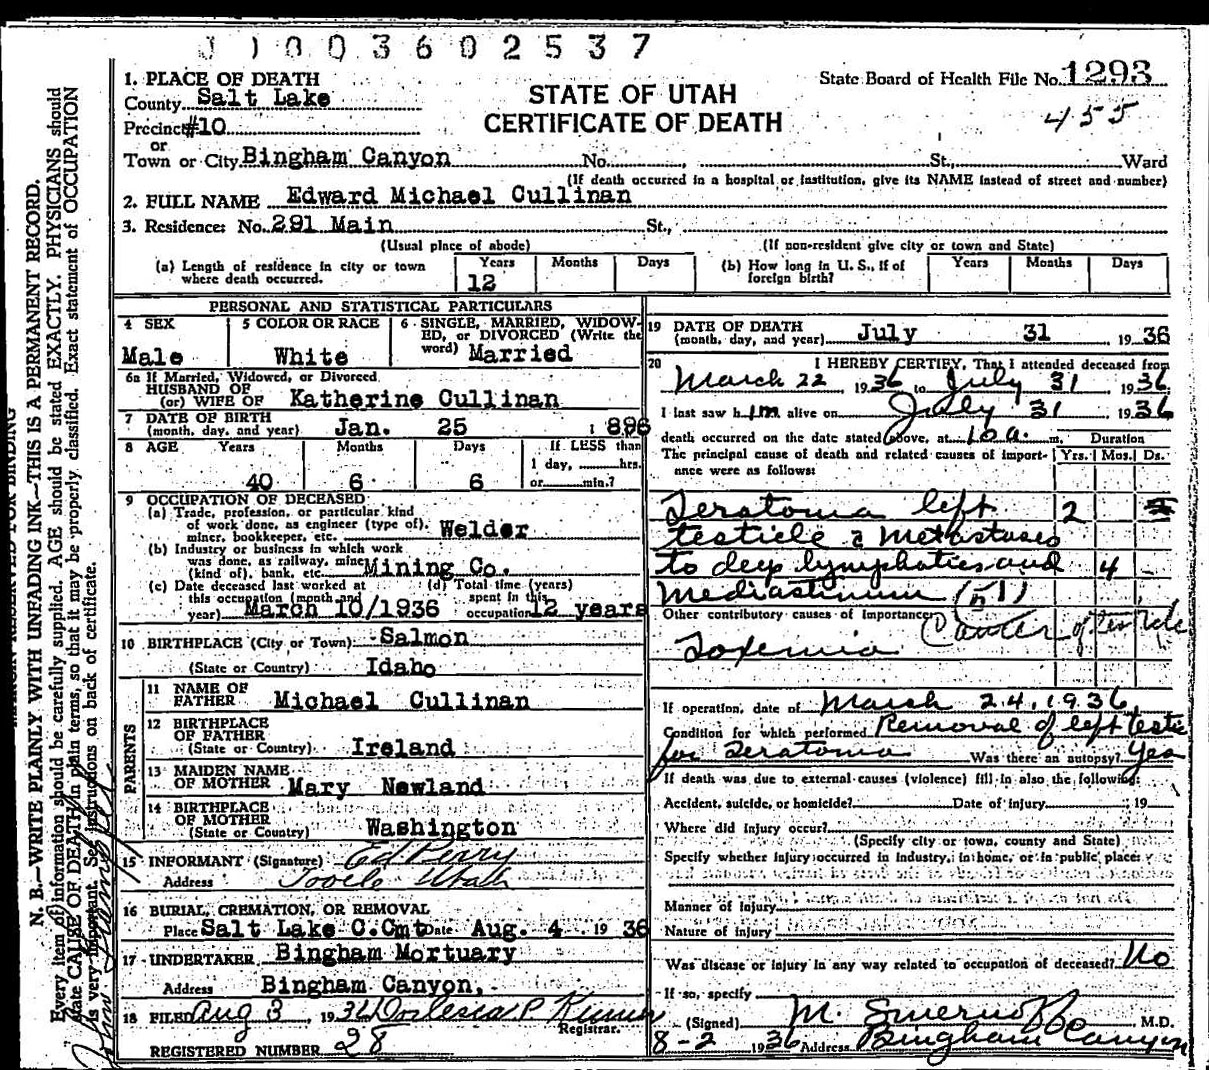 J 1 0 0 3 6 0 2 5 3 7
STATE OF UTAH
CERTIFICATE OF DEATH
State Board of Health File No. 1293
455
1. PLACE OF DEATH
County Salt Lake
Precinct #10
or
Town or City Bingham Canyon No. , St., Ward
(If death occurred in a hospital or institution, give its NAME instead of street and number)
2. FULL NAME Edward Michael Cullinan
3. Residence: No. 291 Main St.,
(Usual place of abode) (If non-resident give city or town and State)
(a) Length of residence in city or town where death occurred. Years 12 Months Days
(b) How long in U. S., if of foreign birth? Years Months Days
PERSONAL AND STATISTICAL PARTICULARS
4 SEX Male
5 COLOR OR RACE White
6 SINGLE, MARRIED, WIDOWED, or DIVORCED (Write the word) Married
6a If Married, Widowed, or Divorced
HUSBAND OF
(or) WIFE OF Katherine Cullinan
7 DATE OF BIRTH
(month, day, and year) Jan. 25 1896
8 AGE Years 40 Months 6 Days 6 If LESS than
1 day, hrs.
or min.?
9 OCCUPATION OF DECEASED
(a) Trade, profession, or particular kind
of work done, as engineer (type of),
miner, bookkeeper, etc. Welder
(b) Industry or business in which work
was done, as railway, mine
(kind of), bank, etc. Mining Co.
(c) Date deceased last worked at
this occupation (month and
year) March 10/1936
(d) Total time (years)
spent in this
occupation 12 years
10 BIRTHPLACE (City or Town) Salmon
(State or Country) Idaho
PARENTS
11 NAME OF
FATHER Michael Cullinan
12 BIRTHPLACE
OF FATHER
(State or Country) Ireland
13 MAIDEN NAME
OF MOTHER Mary Newland
14 BIRTHPLACE
OF MOTHER
(State or Country) Washington
15 INFORMANT (Signature) Ed Perry
Address Tooele Utah
16 BURIAL, CREMATION, OR REMOVAL
Place Salt Lake C.Cmt Date Aug. 4 1936
17 UNDERTAKER Bingham Mortuary
Address Bingham Canyon,
18 FILED Aug 3, 1936
Registrar.
REGISTERED NUMBER 28
19 DATE OF DEATH
(month, day, and year) July 31 1936
20 I HEREBY CERTIFY, That I attended deceased from
March 22 1936 to July 31 1936
I last saw him alive on July 31 1936
death occurred on the date stated above, at 10 a. m. Duration
The principal cause of death and related causes of importance were as follows: Yrs. Mos. Ds.
Teratoma left 2
testicle & metastases
to deep lymphatics and 4 -
Mediastinum
Other contributory causes of importance: Cancer of testicle
Toxemia
If operation, date of March 24, 1936
Condition for which performed Removal of left testic
for Teratoma Was there an autopsy? Yes
If death was due to external causes (violence) fill in also the following:
Accident, suicide, or homicide? Date of injury 19
Where did injury occur?
(Specify city or town, county and State)
Specify whether injury occurred in industry, in home, or in public place:
Manner of injury
Nature of injury
Was disease or injury in any way related to occupation of deceased? No
If so, specify
(Signed) M. M.D.
8-2 1936 Address Bingham Canyon
MARGIN RESERVED FOR BINDING
N. B.—WRITE PLAINLY WITH UNFADING INK—THIS IS A PERMANENT RECORD.
Every item of information should be carefully supplied. AGE should be stated EXACTLY. PHYSICIANS should
state CAUSE OF DEATH in plain terms, so that it may be properly classified. Exact statement of OCCUPATION
is very important. See instructions on back of certificate.